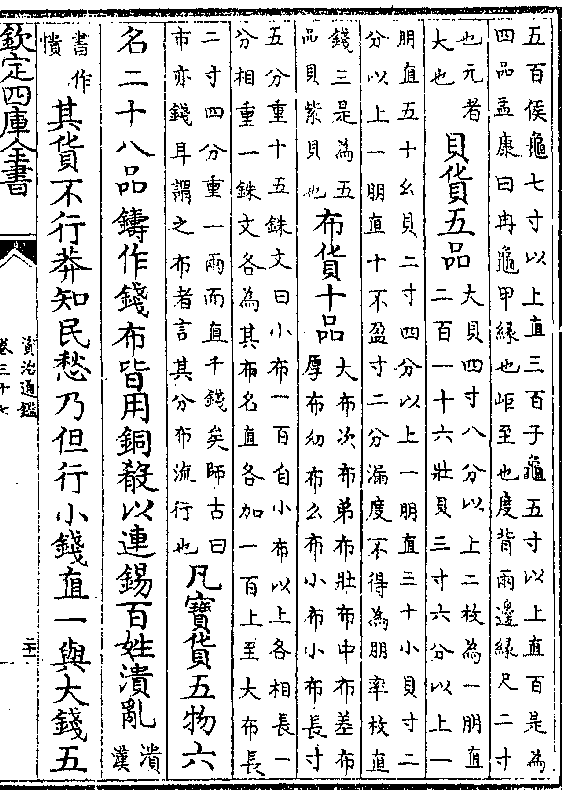 五百侯龜七寸以上直三百子龜五寸以上直百是為
四品孟康曰冉龜甲緣也岠至也度背兩邊緣尺二寸
也元者
大也
貝貨五品
大貝四寸八分以上二枚為一朋直
二百一十六壯貝三寸六分以上一
朋直五十幺貝二寸四分以上一朋直三十小貝寸二
分以上一朋直十不盈寸二分漏度不得為朋率枚直
錢三是為五
品貝紫貝也
布貨十品
大布次布弟布壯布中布差布
厚布幼布幺布小布小布長寸
五分重十五銖文曰小布一百自小布以上各相長一
分相重一銖文各為其布名直各加一百上至大布長
二寸四分重一兩而直千錢矣師古曰
市亦錢耳謂之布者言其分布流行也
凡寶貨五物六
名二十八品鑄作錢布皆用銅殽以連錫百姓潰亂
潰
漢
書作
憒
其貨不行莽知民愁乃但行小錢直一與大錢五
欽定四庫全書
資治通鑑
卷三十七